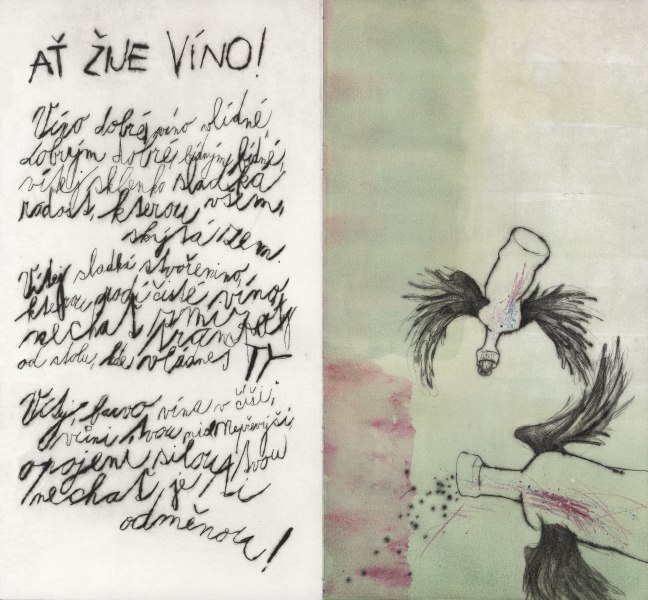 AŤ ŽIJE VÍNO!
Víno dobré, víno vlídné,
dobrým dobré, bídným bídné,
vítej sklenko sladká
radost, kterou všem,
skýtá zem.
Vítej sladká stvořenino,
kterou podčísté víno,
nechať zmizí
trampoty
od stolu, kde vládneš TY
Vítej, barvo vína v číši,
vůni tvou nic nepřevýší,
opojení silou tvou
nechať je ti
odměnou!